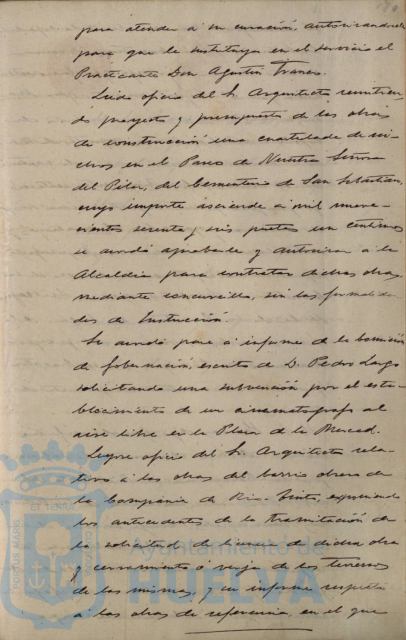 para atender a su curación, autorizandole
para que le sustituya en el servicio el
Practicante Don Agustin Franco.
Leido oficio del Sr. Arquitecto remitien-
do proyecto y presupuesto de las obras
de construcción una cuartelada de ni-
chos en el Paseo de Nuestra Señora
del Pilar, del Cementerio de San Sebastian,
cuyo importe asciende a mil nueve-
cientas sesenta y seis pesetas un centimo
se acordó aprobarlo y autorizar a la
Alcaldia para contratar dichas obras
mediante concursillo, sin las formalida-
des de Instrucción.
Se acordó pase a informe de la Comisión
de Gobernación, escrito de D. Pedro Largo
solicitando una subvención por el esta-
blecimiento de un cinematografo al
aire libre en la Plaza de la Merced.
Leyose oficio del Sr. Arquitecto rela-
tivo a las obras del barrio obrero de
la Compañia de Rio-Tinto, exponiendo
los antecedentes de la tramitación de
la solicitud de licencia de dicha obra
y cerramiento ó verja de los terrenos
de las mismas, y su informe respecto
a las obras de referencia, en el que
PORTUS MARIS
ET TERRÆ
CUSTODIA
Ayuntamiento de
HUELVA